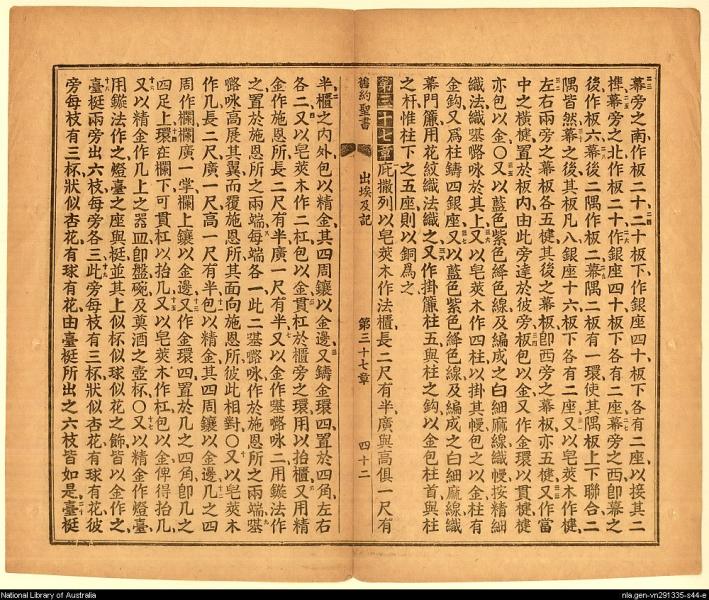 幕旁之南作板二十二十板下作銀座四十板下各有二座以接其二
榫幕旁之北作板二十作銀座四十板下各有二座幕旁之西卽幕之
後作板六幕後二隅作板二幕隅二板有一環使其隅板上下聯合二
隅皆然幕之後其板凡八銀座十六板下各有二座又以皂莢木作楗
左右兩旁之幕板各五楗其後之幕板卽西旁之幕板亦五楗又作當
中之橫楗置於板內由此旁達於彼旁板包以金又作金環以貫楗楗
亦包以金〇又以藍色紫色絳色線及編成之白細麻線織幔按精細
織法織𠼻𡀔咏於其上又以皂莢木作四柱以掛其幔包之以金柱有
金鈎又爲柱鑄四銀座又以藍色紫色絳色線及編成之白細麻線織
幕門簾用花紋織法織之又作掛簾柱五與柱之鈎以金包柱首與柱
之杆惟柱下之五座則以銅爲之
第三十七章 庇撒列以皂莢木作法櫃長二尺有半廣與高俱一尺有
舊約聖書 出埃及記 第三十七章 四十二
半櫃之內外包以精金其四周鑲以金邊又鑄金環四置於四角左右
各二又以皂莢木作二杠包以金貫杠於櫃旁之環用以抬櫃又用精
金作施恩所長二尺有半廣一尺有半又以金作𠼻𡀔咏二用鏇法作
之置於施恩所之兩端每端各一此二𠼻𡀔咏作於施恩所之兩端𠼻
𡀔咏高展其翼而覆施恩所其面向施恩所彼此相對〇又以皂莢木
作几長二尺廣一尺高一尺有半包以精金其四周鑲以金邊几之四
周作欄欄廣一掌欄上鑲以金邊又作金環四置於几之四角卽几之
四足上環在欄下可貫杠以抬几又以皂莢木作杠包以金俾得抬几
又以精金作几上之器皿卽盤碗及奠酒之壺杯〇又以精金作燈臺
用鏇法作之燈臺之座與梃並其上似杯似球似花之飾皆以金作之
臺梃兩旁出六枝每旁各三此旁每枝有三杯狀似杏花有球有花彼
旁每枝有三杯狀似杏花有球有花由臺梃所出之六枝皆如是臺梃
National Library of Australia
nla.gen-vn291335-s44-e